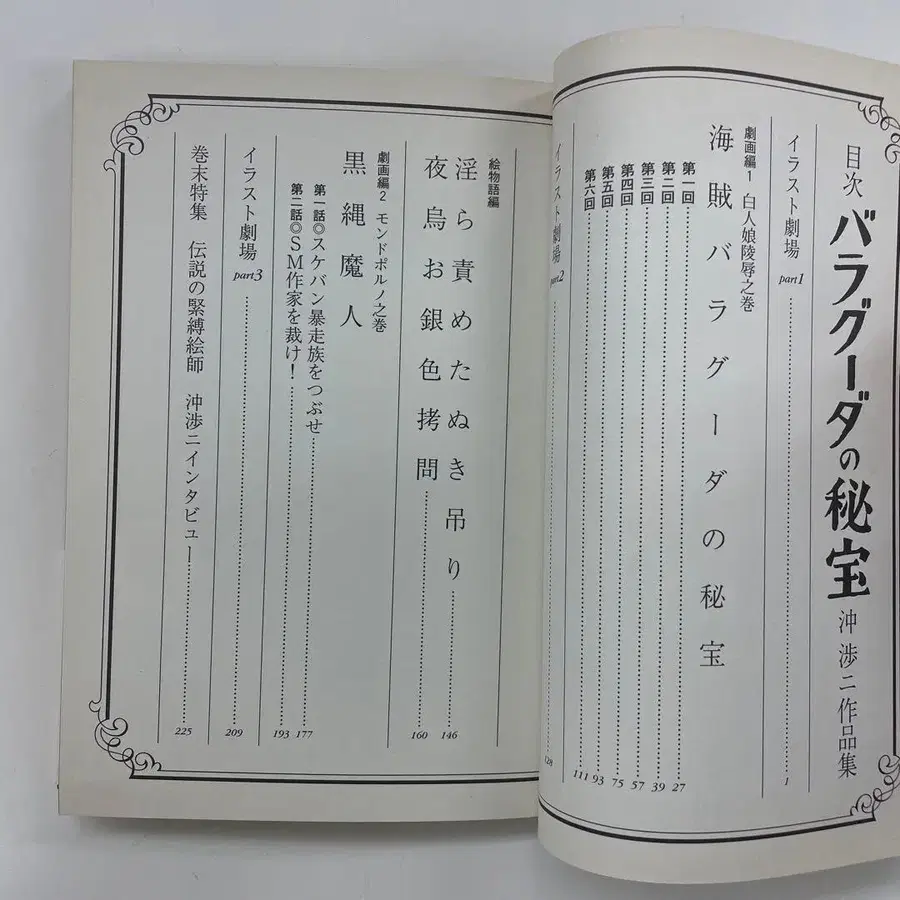 目次 バラグーダの秘宝 沖渉二作品集
イラスト劇場 part1 1
劇画編1 白人娘陵辱之巻
海賊バラグーダの秘宝
第一回 27
第二回 39
第三回 57
第四回 75
第五回 93
第六回 111
イラスト劇場 part2 128
絵物語編
淫ら責めたぬき吊り 146
夜烏お銀色拷問 160
劇画編2 モンドポルノ之巻
黒縄魔人
第一話◎スケバン暴走族をつぶせ 177
第二話◎SM作家を裁け! 193
イラスト劇場 part3 209
巻末特集 伝説の緊縛絵師 沖渉二インタビュー 225